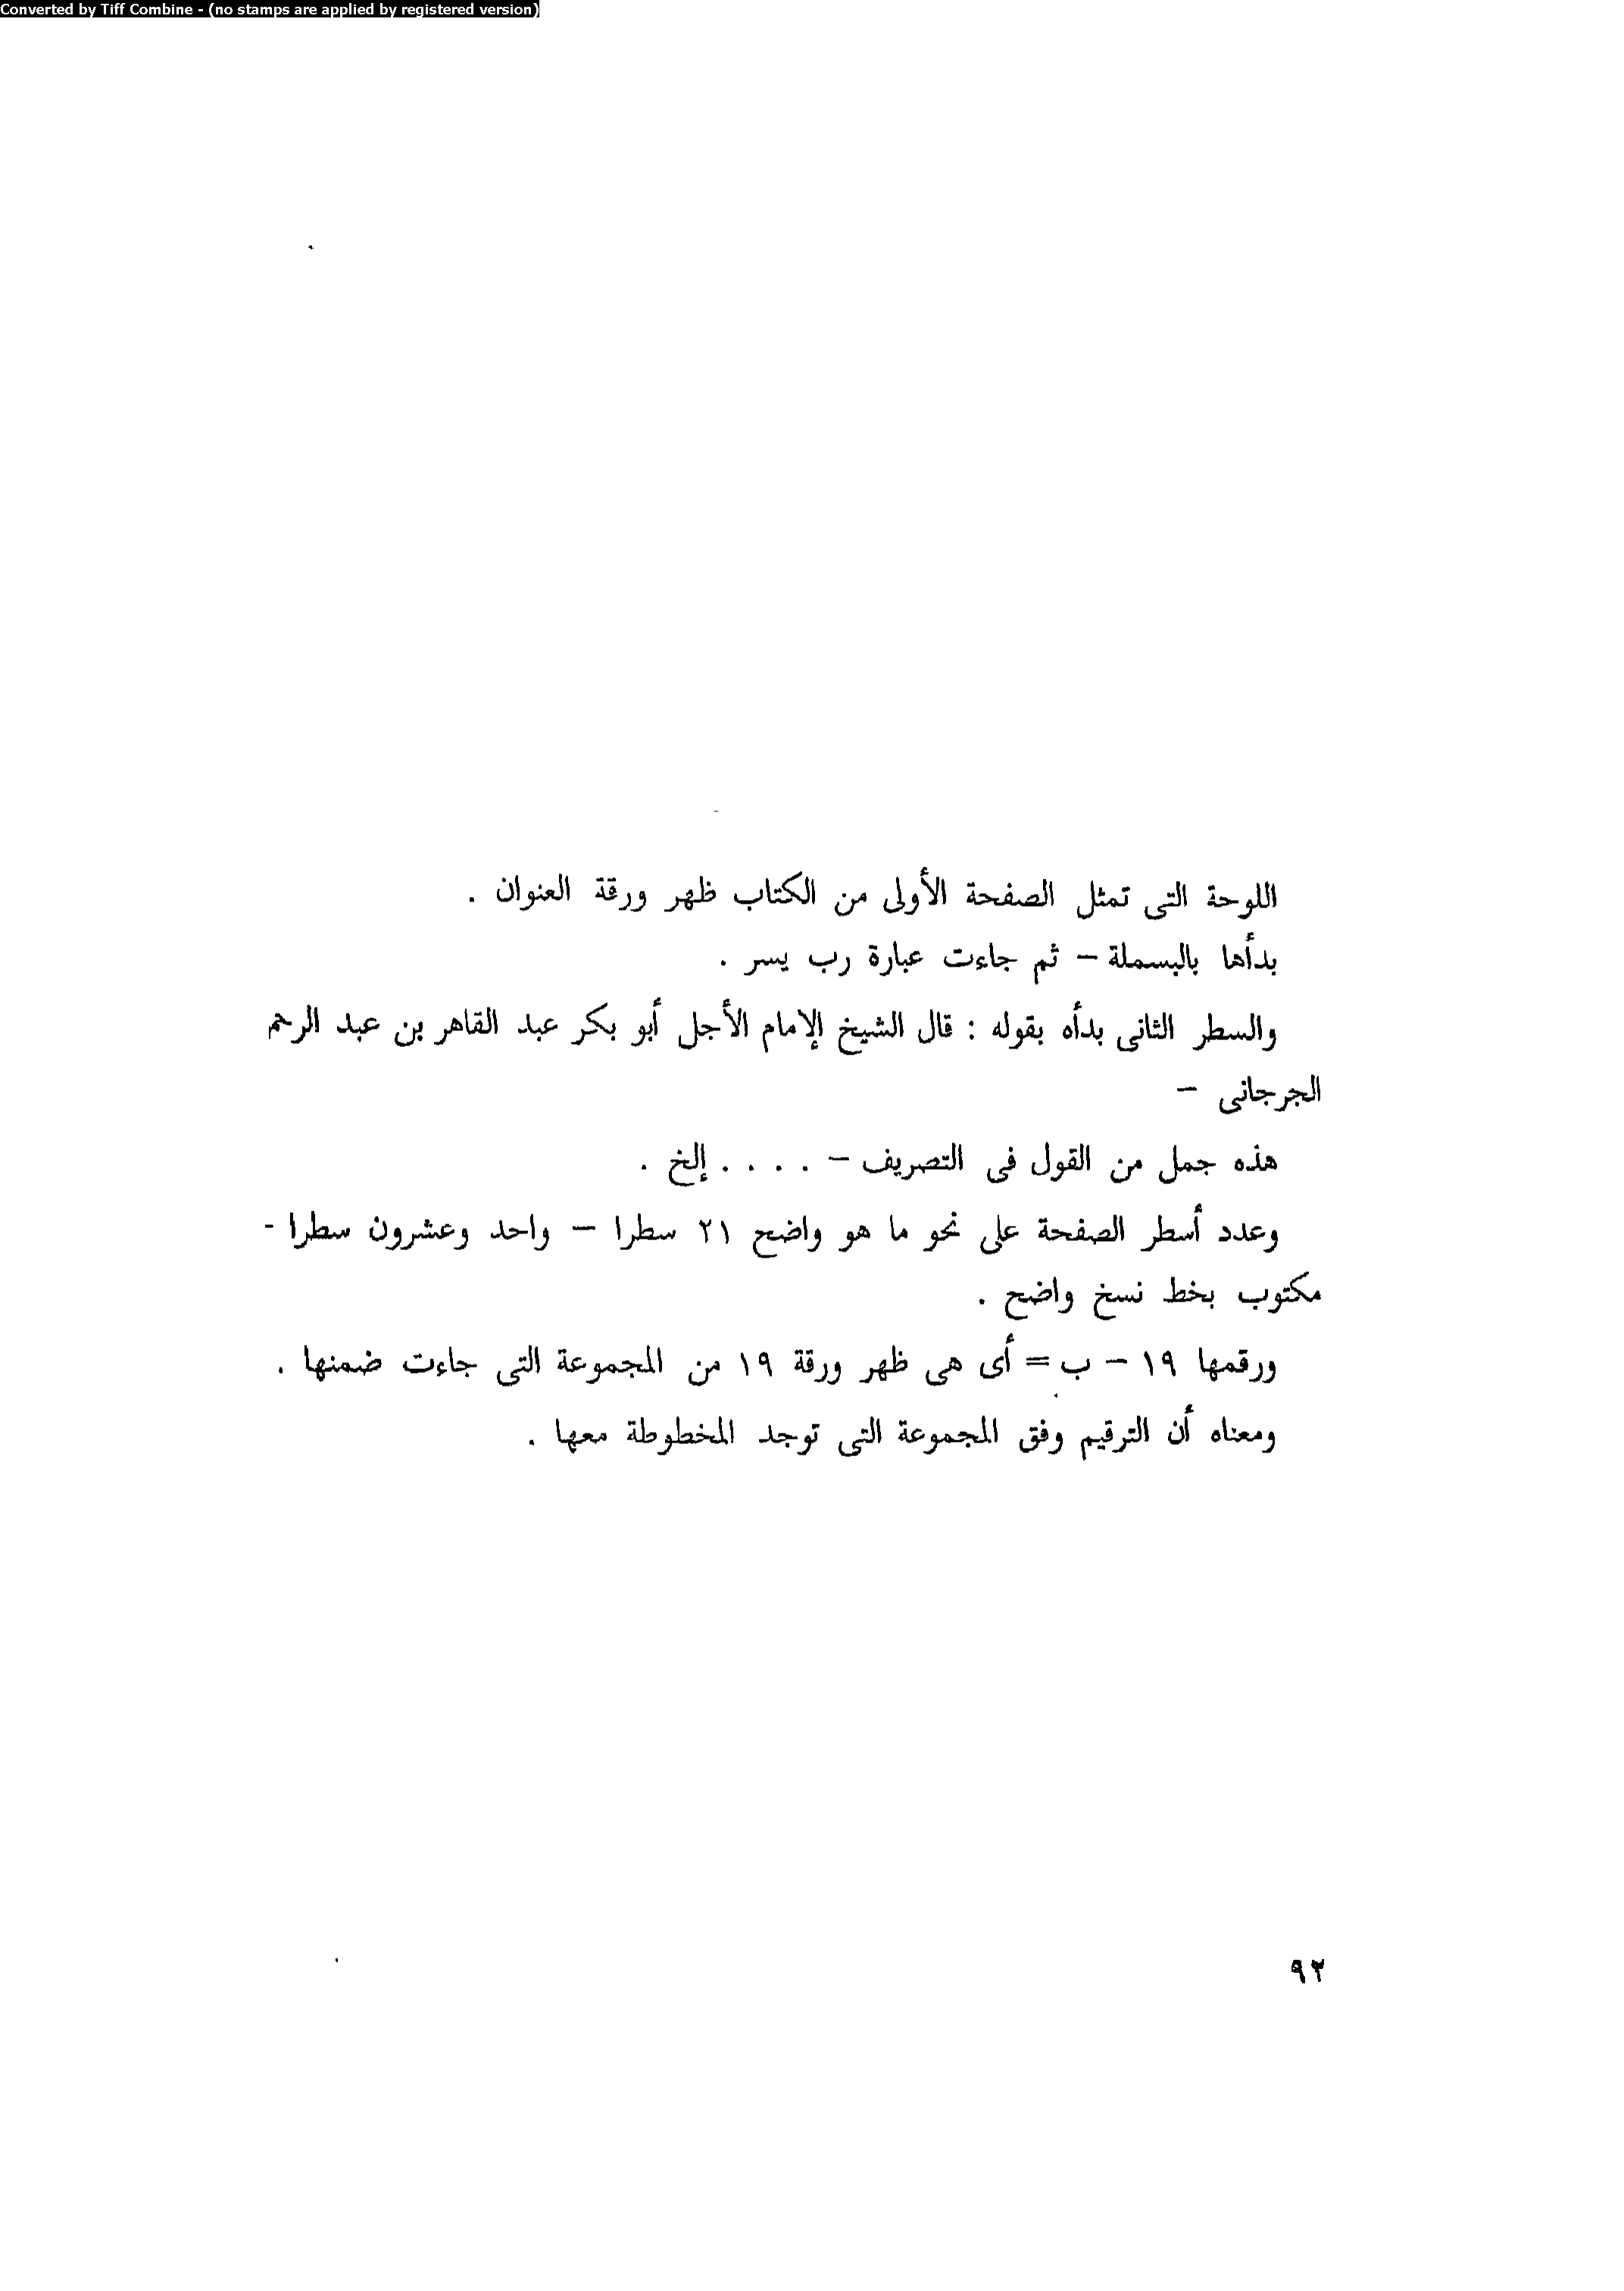 Converted by Tiff Combine - (no stamps are applied by registered version)
اللوحة التى تمثل الصفحة الأولى من الكتاب ظهر ورقة العنوان .
بدأها بالبسملة – ثم جاءت عبارة رب يسر .
والسطر الثانى بدأه بقوله : قال الشيخ الإمام الأجل أبو بكر عبد القاهر بن عبد الرحم
الجرجانى –
هذه جمل من القول فى التصريف – . . . . إلخ .
وعدد أسطر الصفحة على نحو ما هو واضح ٢١ سطرا – واحد وعشرون سطرا -
مكتوب بخط نسخ واضح .
ورقمها ١٩ – ب = أى هى ظهر ورقة ١٩ من المجموعة التى جاءت ضمنها .
ومعناه أن الترقيم وفق المجموعة التى توجد المخطوطة معها .
٩٢